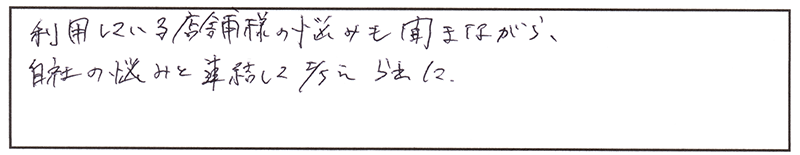 利用している店舗様の悩みも聞きながら、
自社の悩みと連結して考えられた。